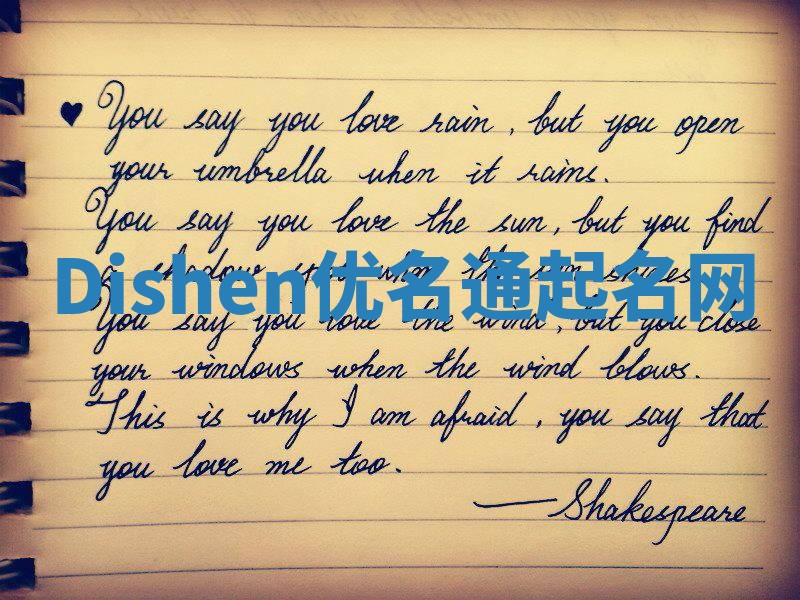 You say you love rain, but you open
your umbrella when it rains.
You say you love the sun, but you find
a shadow spot when the sun shines.
Dishen优名通起名网
You say you love the wind, but you close
your windows when the wind blows.
This is why I am afraid, you say that
you love me too.
—Shakespeare